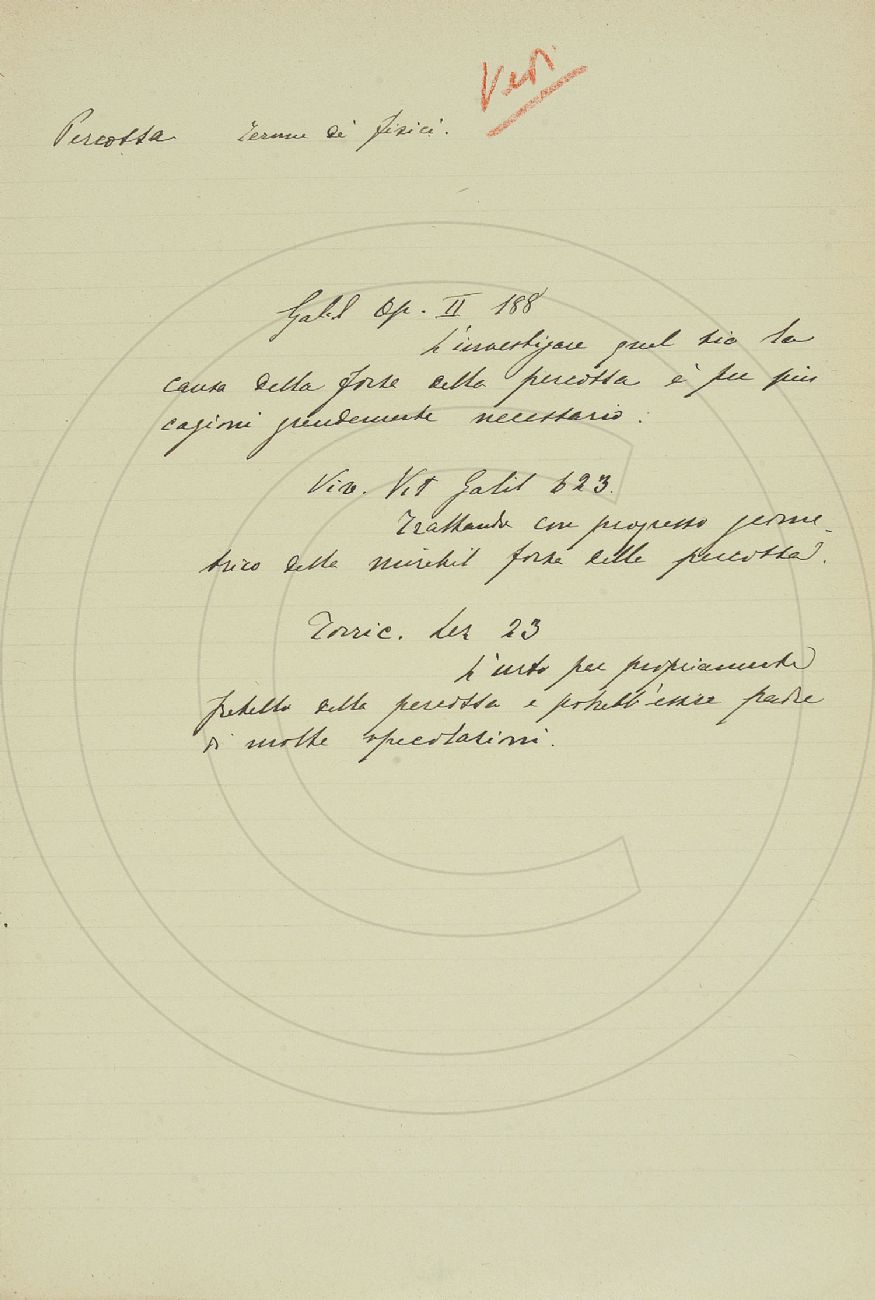 Vedi
Percossa Termine di fisici.
Galil Op. II 188
L'investigare qual sia la
causa della forza della percossa è per più
cagioni grandemente necessario:
Viv. Vit Galil 623.
Trattando con progresso geome-
trico della mirabil forza della percossa.
Torric. Lez 23
L'urto per propriamente
fratello della percossa e potrebb'essere padre
di molte specolazioni.